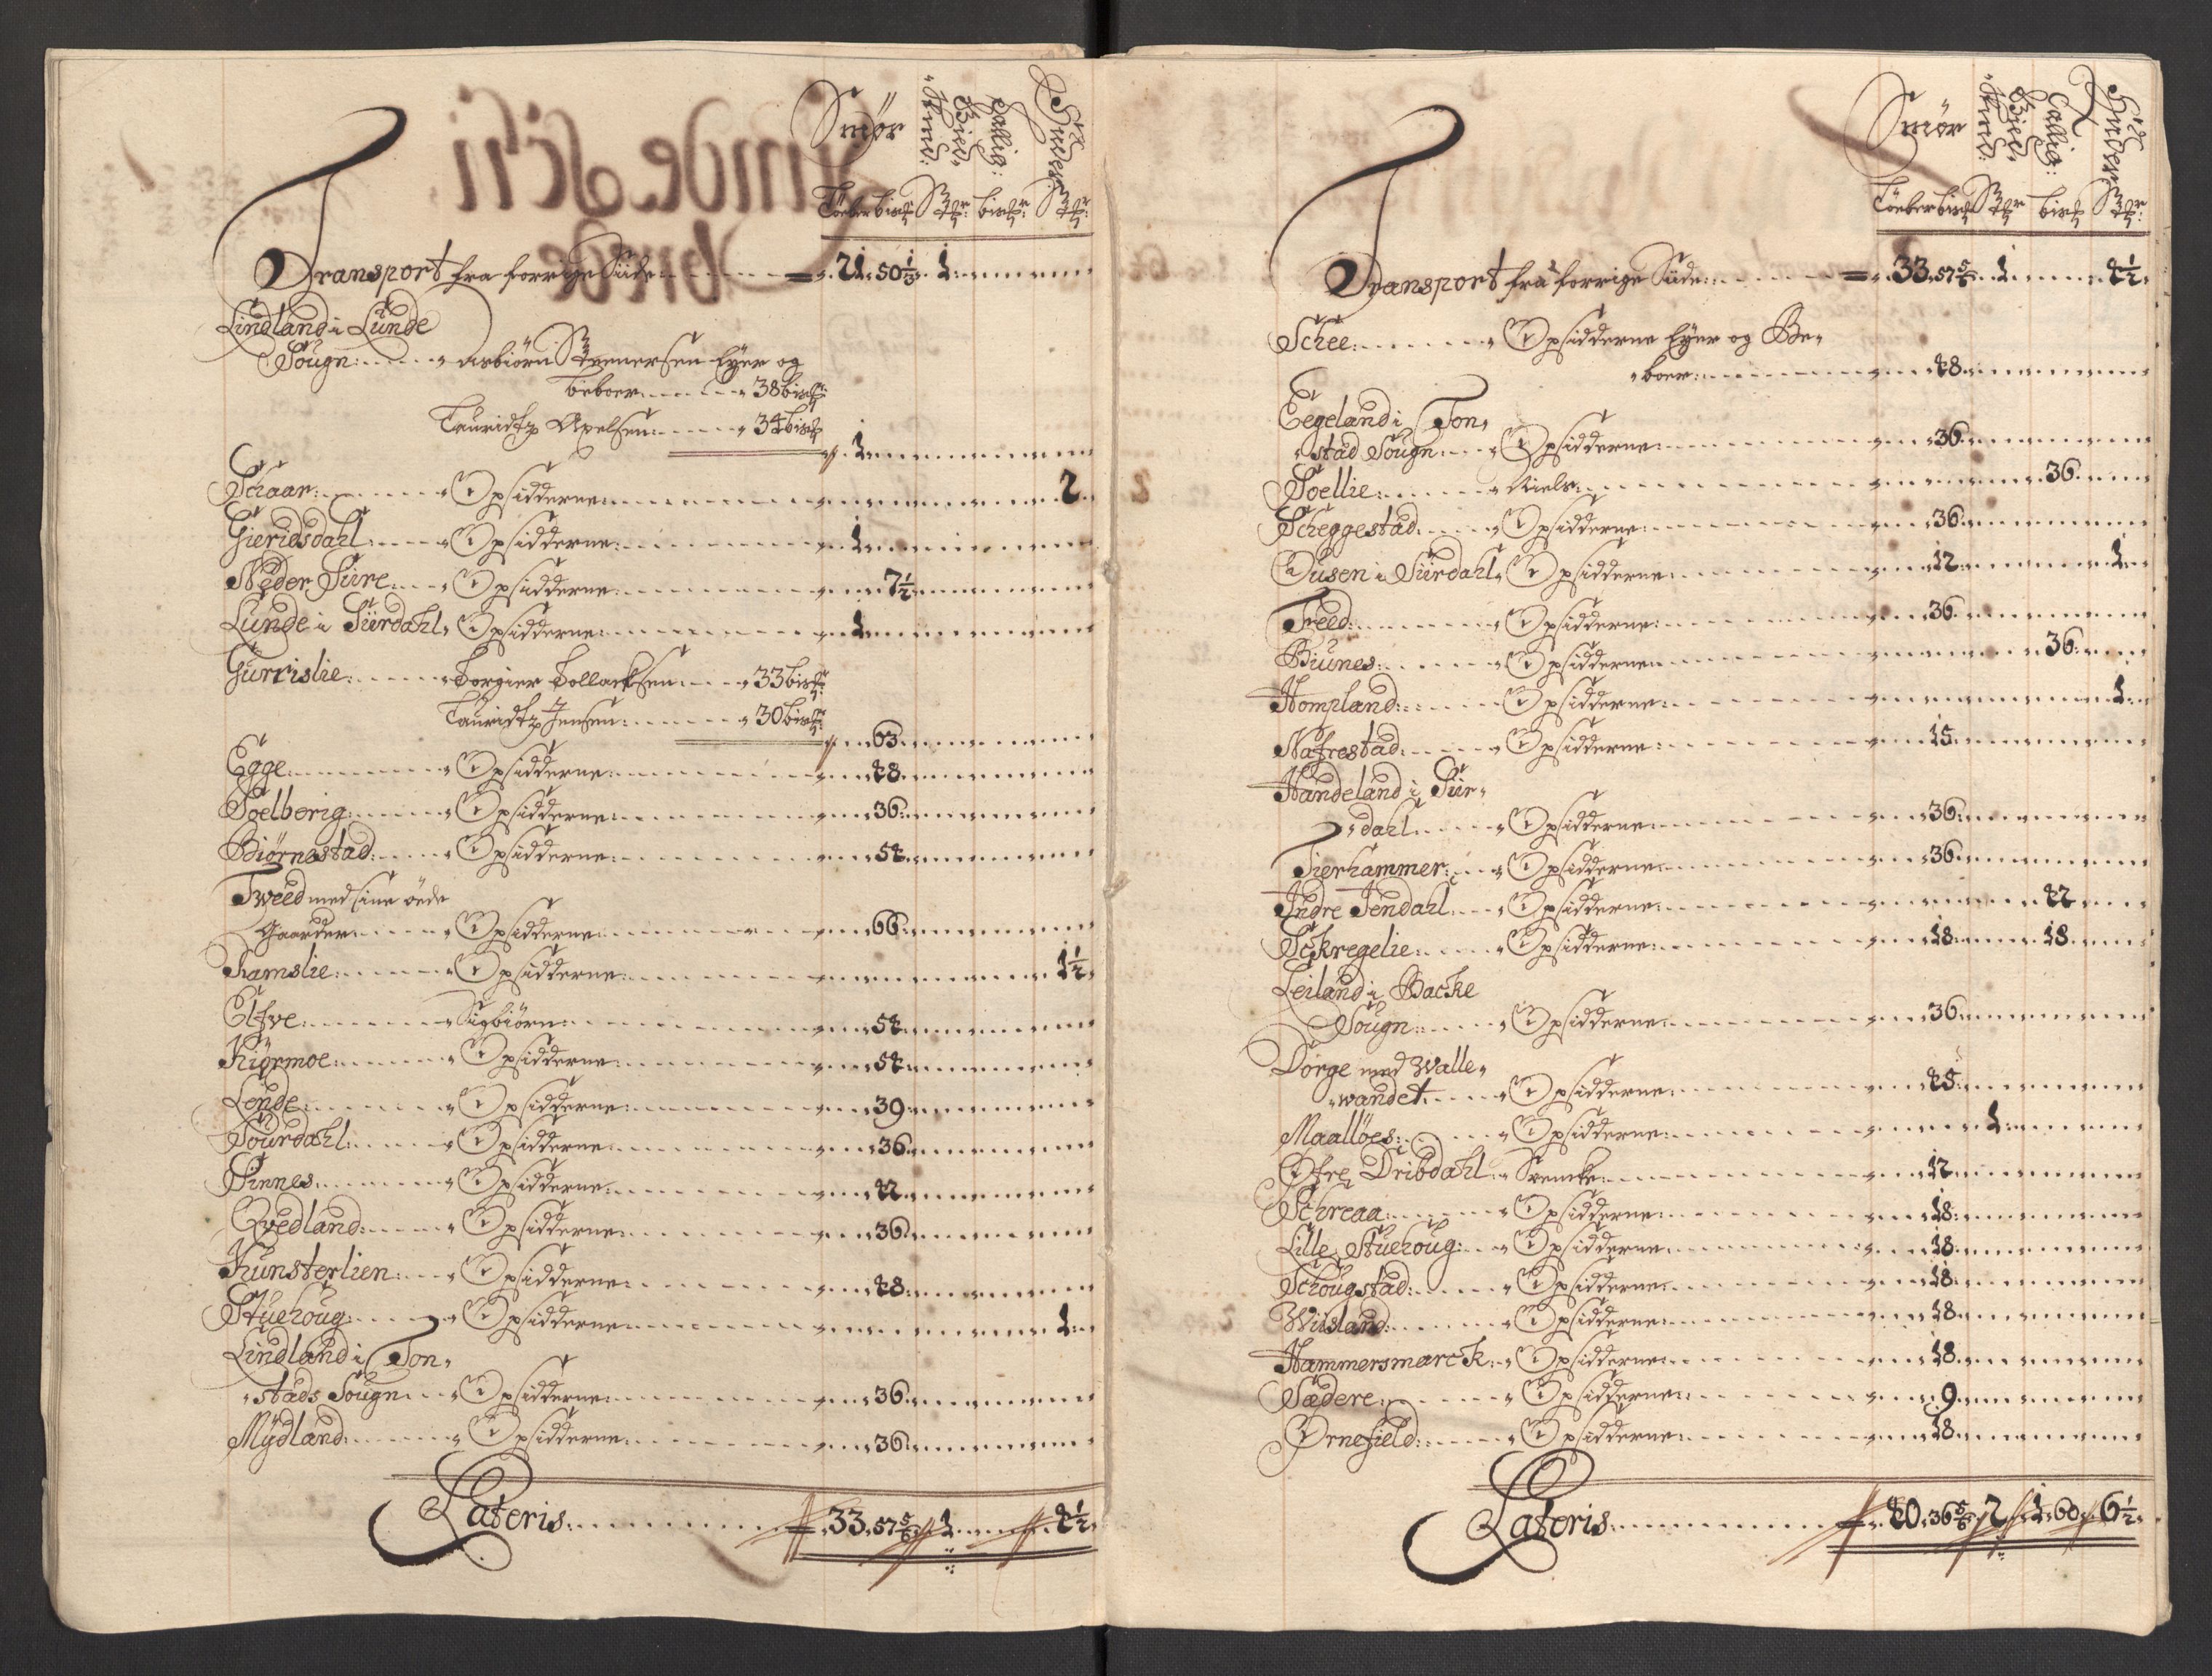 Smør
Hud:
Tønder bispd
Transport fra forrige Side: 21. 50 1/3. 1.
Lindland i Lunde
Sougn: Asbiørn Svenersen Eyer og
beboer 38 bispd
Tauridtz Axelsen: 34 bispd
1.
Schaar: Opsidderne: 2.
Gieridsdahl: Opsidderne: 1.
Neder Siire: Opsidderne: 7 1/2
Lunde i Siirdahl, Opsidderne: 1.
Gurrislie: Torgier Tollacksen: 33 bispd
Tauridtz Jensen: 30 bispd
63.
Egge: Opsidderne: 48.
Soelberig: Opsidderne: 36.
Biørnestad: Opsidderne: 54.
Tweed med sine øede
Gaarder: Opsidderne: 66.
Ramslie: Opsidderne: 1 1/2
Elfve: Sigbiørn: 54.
Kiørmoe: Opsidderne: 54.
Lende: Opsidderne: 39.
Sourdahl: Opsidderne: 36.
Sinnes: Opsidderne: 42.
Qvedland: Opsidderne: 36.
Kunsterlien: Opsidderne: 48.
Stuehoug: Opsidderne: 1.
Lindland i Ton,
stads Sougn: Opsidderne: 36.
Mydland: Opsidderne: 36.
Lateris: 33. 57 5/6. 1. 4 1/2.
Smør
Tønder bispd
Transport fra forrige Side: 33. 57 5/6. 1. 4 1/2.
Schee: Opsidderne Eyer og Be,
boer: 48.
Eegeland i Ton,
stad Sougn: Opsidderne: 36.
Soellie: Niels: 36.
Scheggestad: Opsidderne: 36.
Ousen i Siirdahl, Opsidderne: 12. 1.
Treed: Opsidderne: 36.
Biunes: Opsidderne: 36.
Hompland: Opsidderne: 1.
Nafrestad: Opsidderne: 15.
Handeland i Siir,
dahl: Opsidderne: 36.
Tierhammer: Opsidderne: 36.
Indre Jendahl: Opsidderne: 42
Sckregelie: Opsidderne: 18. 18.
Leiland i Backe
Sougn: Opsidderne: 36.
Dorge med Walle,
wandet: Opsidderne: 45.
Maalløes: Opsidderne: 1.
Øfre Dribdahl: Svencke: 12.
Schreaa: Opsidderne: 18.
Lille Stuehoug: Opsidderne: 18.
Schougstad: Opsidderne: 18.
Wiisland: Opsidderne: 18.
Hammersmarck: Opsidderne: 18.
Sædere: Opsidderne: 9.
Ørnefield: Opsidderne: 18.
Lateris: 40. 36 5/6. 2. 1. 60. 6 1/2.